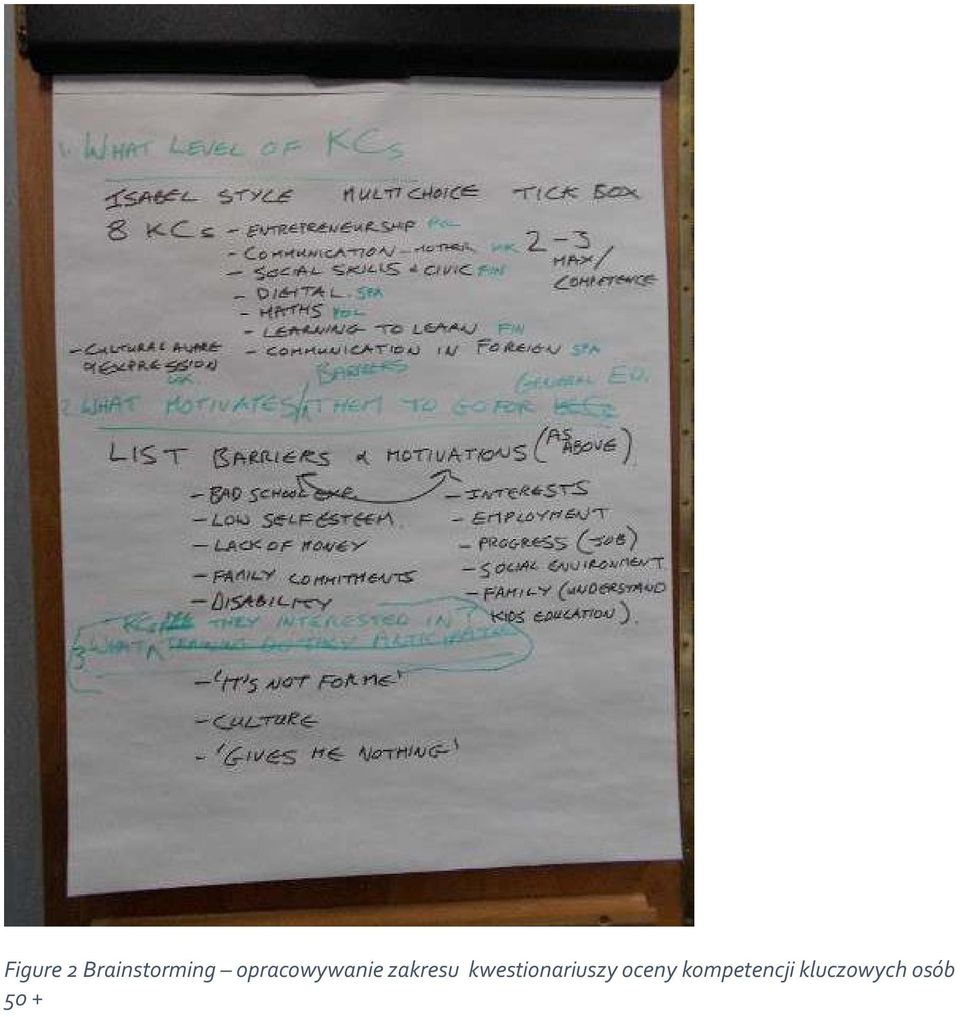 1. WHAT LEVEL OF KCs
ISABEL STYLE MULTICHOICE TICK BOX
8 KCs - ENTREPRENEURSHIP POL
- COMMUNICATION - MOTHER UK 2-3
- SOCIAL SKILLS & CIVIC FIN MAX/
- DIGITAL. SPA COMPETENCE
- MATHS POL
- LEARNING TO LEARN FIN
- CULTURAL AWARE - COMMUNICATION IN FOREIGN SPA
& EXPRESSION
UK. BARRIERS GENERAL ED.
2. WHAT MOTIVATES/ THEM TO GO FOR KCs
LIST BARRIERS & MOTIVATIONS (AS ABOVE).
- BAD SCHOOL EXP. - INTERESTS
- LOW SELF ESTEEM. - EMPLOYMENT
- LACK OF MONEY - PROGRESS (JOB)
- FAMILY COMMITMENTS - SOCIAL ENVIRONMENT
- DISABILITY - FAMILY (UNDERSTAND
KIDS EDUCATION).
KCs ARE THEY INTERESTED IN?
3 WHAT TRAINING DO THEY PARTICIPATE
- 'IT'S NOT FOR ME'
- CULTURE
- 'GIVES ME NOTHING'
Figure 2 Brainstorming – opracowywanie zakresu kwestionariuszy oceny kompetencji kluczowych osób
50 +